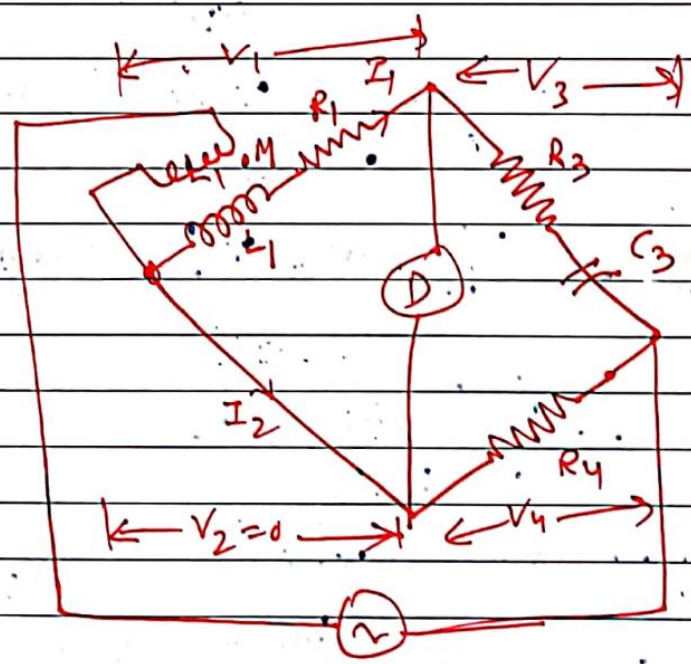 V₁
I₁
V₃
R₁
R₃
L₁ M
L₁
C₃
D
I₂
R₄
V₂ = 0
V₄
~